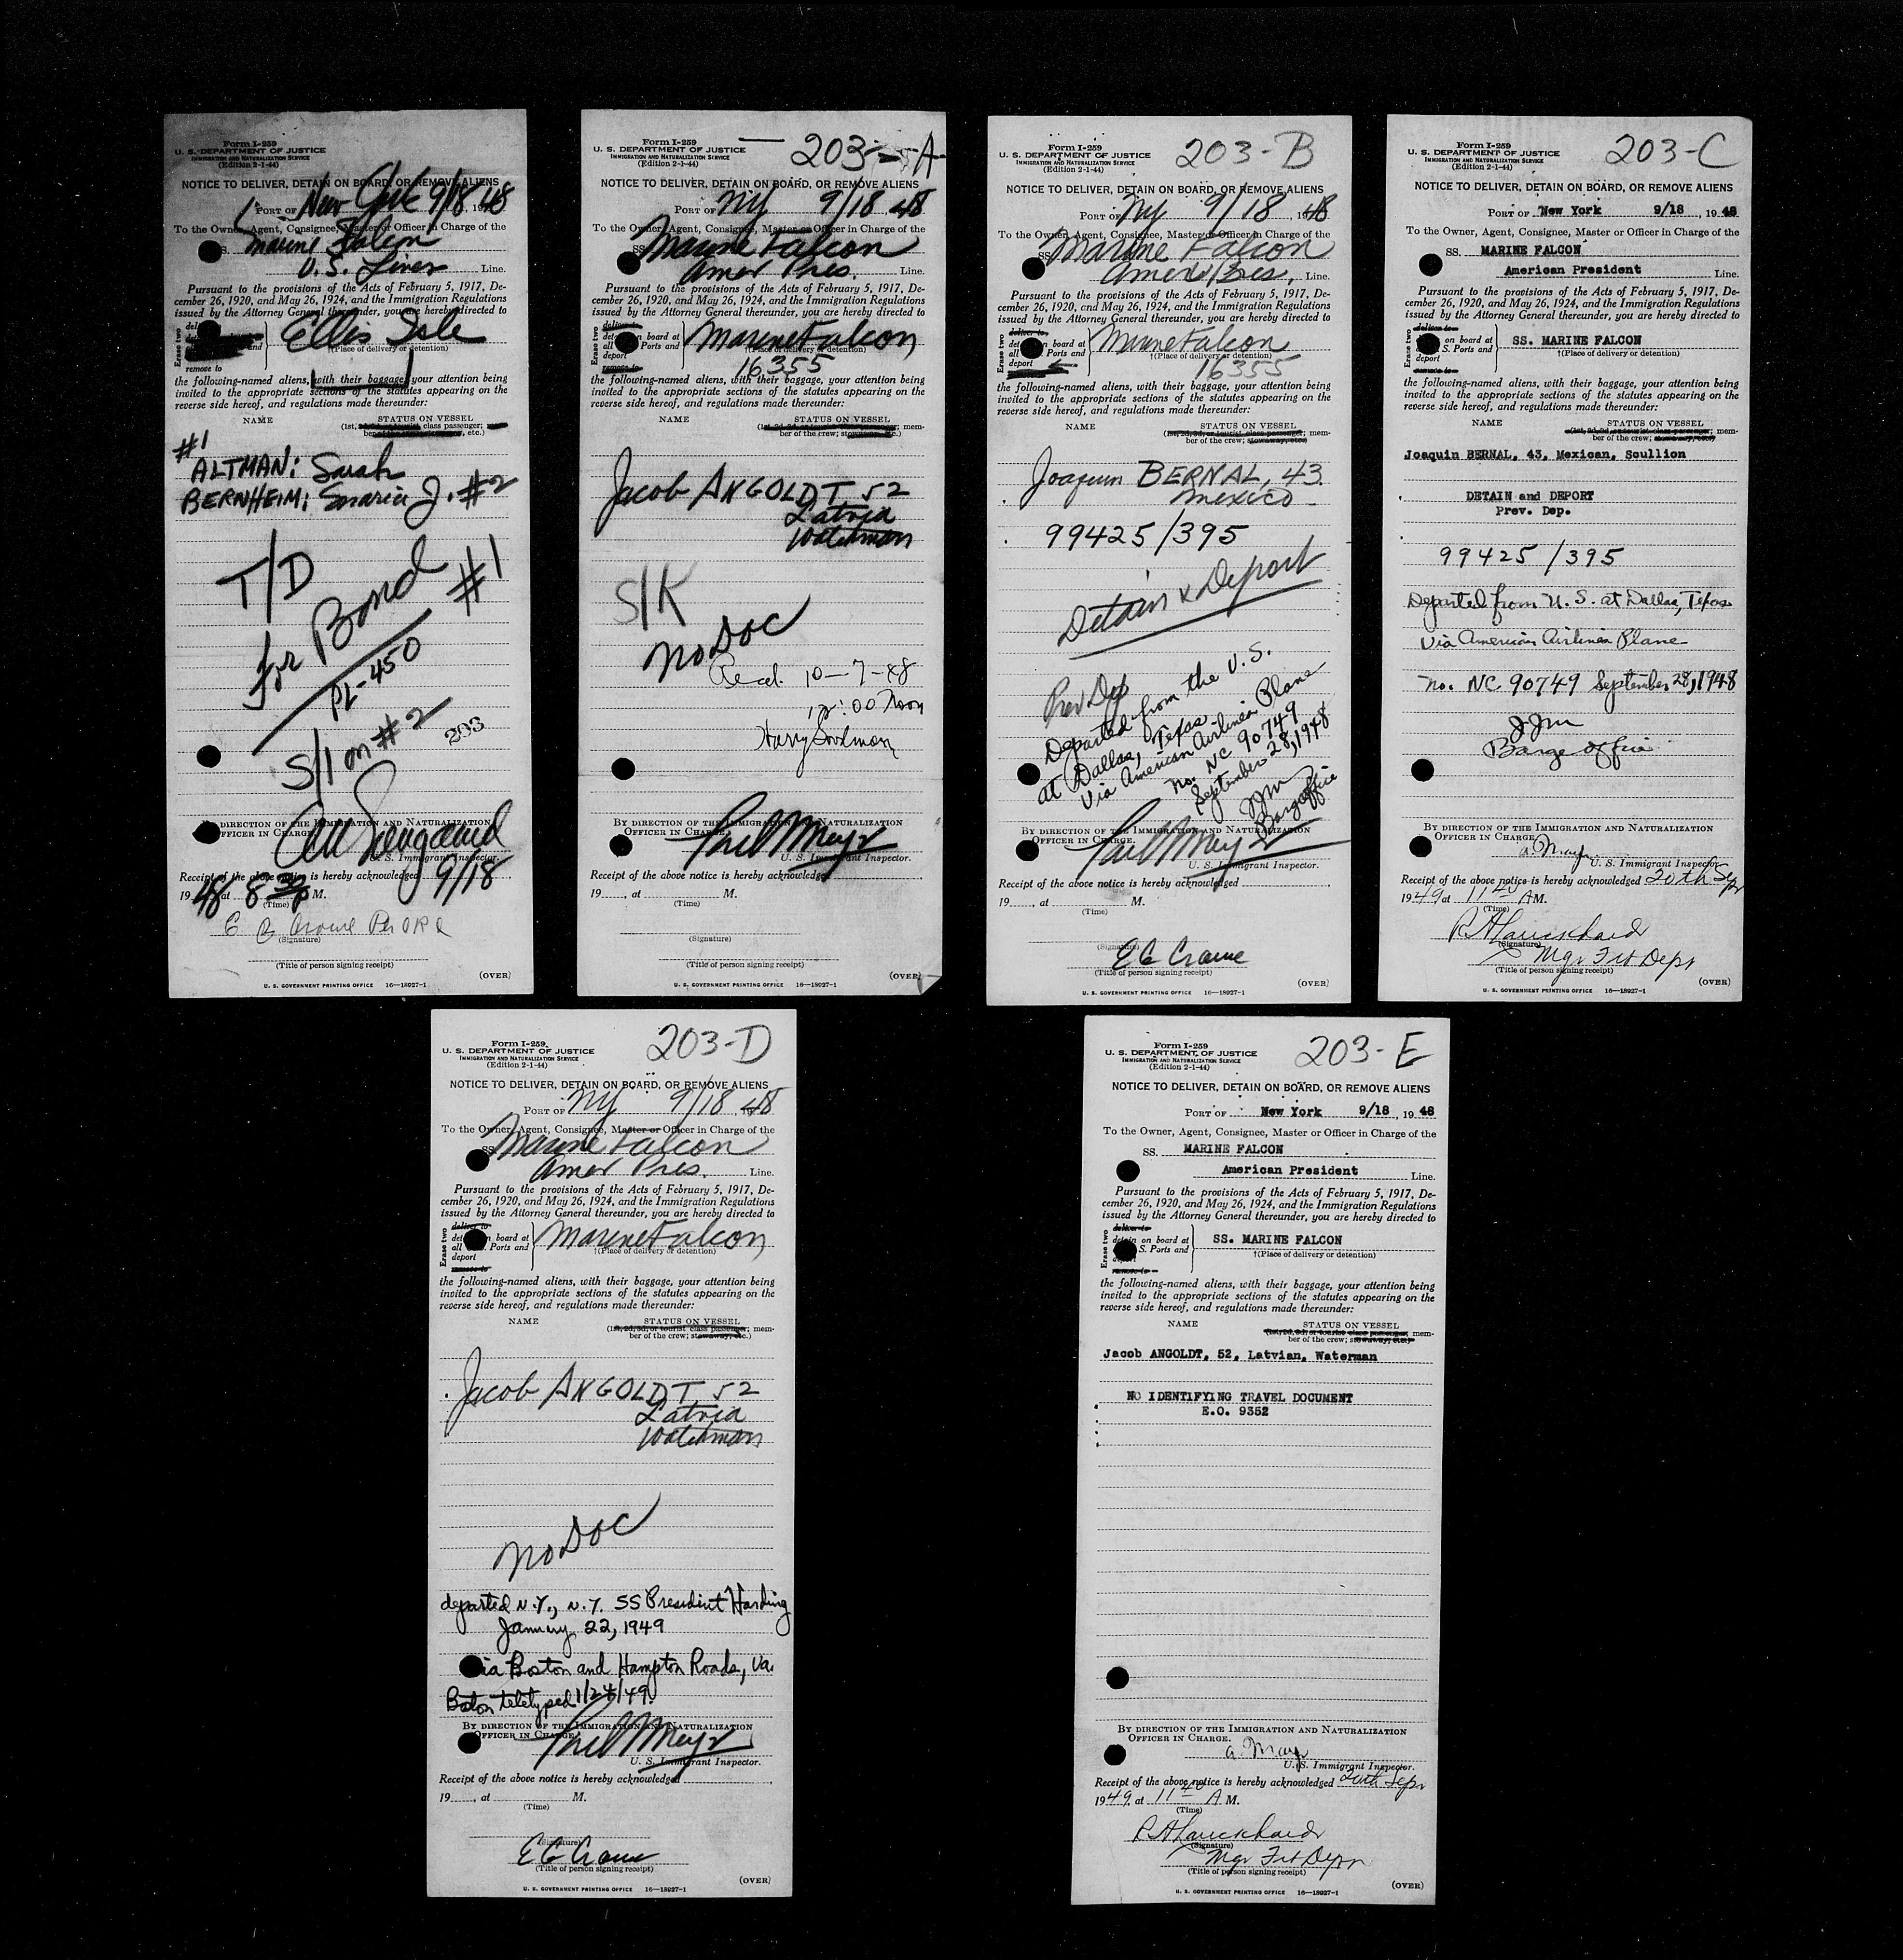 Form I-259
U. S. DEPARTMENT OF JUSTICE
IMMIGRATION AND NATURALIZATION SERVICE
(Edition 2-1-44)
NOTICE TO DELIVER, DETAIN ON BOARD, OR REMOVE ALIENS
PORT OF New York 9/18, 1948
To the Owner, Agent, Consignee, Master or Officer in Charge of the
Marine Falcon
U.S. Lines Line.
Pursuant to the provisions of the Acts of February 5, 1917, De-
cember 26, 1920, and May 26, 1924, and the Immigration Regulations
issued by the Attorney General thereunder, you are hereby directed to
Ellis Isle
(Place of delivery or detention)
remove to
the following-named aliens, with their baggage, your attention being
invited to the appropriate sections of the statutes appearing on the
reverse side hereof, and regulations made thereunder:
NAME STATUS ON VESSEL
class passenger;
etc.)
#1
ALTMAN: Sarah
BERNHEIM: Maria J. #2
T/D
for Bond #1
PL-450
S/I on #2
203
BY DIRECTION OF THE IMMIGRATION AND NATURALIZATION
OFFICER IN CHARGE
U. S. Immigrant Inspector.
Receipt of the above notice is hereby acknowledged 9/18
1948 at 8 30 P M.
(Time)
(Signature)
(Title of person signing receipt)
(OVER)
U. S. GOVERNMENT PRINTING OFFICE 16-18927-1
203-A
Form I-259
U. S. DEPARTMENT OF JUSTICE
IMMIGRATION AND NATURALIZATION SERVICE
(Edition 2-1-44)
NOTICE TO DELIVER, DETAIN ON BOARD, OR REMOVE ALIENS
PORT OF NY 9/18 48
To the Owner, Agent, Consignee, Master or Officer in Charge of the
SS Marine Falcon
Amer Pres. Line.
Pursuant to the provisions of the Acts of February 5, 1917, De-
cember 26, 1920, and May 26, 1924, and the Immigration Regulations
issued by the Attorney General thereunder, you are hereby directed to
Erase two
deliver to
on board at
all Ports and
deport
remove to
Marine Falcon
(Place of delivery or detention)
16355
the following-named aliens, with their baggage, your attention being
invited to the appropriate sections of the statutes appearing on the
reverse side hereof, and regulations made thereunder:
NAME STATUS ON VESSEL
(1st, 2d, 3d, or tourist class passenger; mem-
ber of the crew; stowaway, etc.)
Jacob ANGOLDT 52
Latvia
Watchman
S/K
No Doc
Recd. 10-7-48
12:00 Noon
Harry Goodman
BY DIRECTION OF THE IMMIGRATION AND NATURALIZATION
OFFICER IN CHARGE.
Phil Mayr
U. S. Immigrant Inspector.
Receipt of the above notice is hereby acknowledged
19 , at M.
(Time)
(Signature)
(Title of person signing receipt)
(OVER)
U. S. GOVERNMENT PRINTING OFFICE 16-18927-1
203-B
Form I-259
U. S. DEPARTMENT OF JUSTICE
IMMIGRATION AND NATURALIZATION SERVICE
(Edition 2-1-44)
NOTICE TO DELIVER, DETAIN ON BOARD, OR REMOVE ALIENS
PORT OF NY 9/18 1948
To the Owner, Agent, Consignee, Master or Officer in Charge of the
SS Marine Falcon
Amer Pres. Line.
Pursuant to the provisions of the Acts of February 5, 1917, De-
cember 26, 1920, and May 26, 1924, and the Immigration Regulations
issued by the Attorney General thereunder, you are hereby directed to
Erase two
deliver to
on board at
all Ports and
deport
Marine Falcon
†(Place of delivery or detention)
16355
the following-named aliens, with their baggage, your attention being
invited to the appropriate sections of the statutes appearing on the
reverse side hereof, and regulations made thereunder:
NAME STATUS ON VESSEL
(1st, 2d, 3d, or tourist class passenger; mem-
ber of the crew; stowaway, etc.)
Joaquin BERNAL, 43
Mexico
99425/395
Detain & Deport
Prev Dep
Departed from the U.S.
at Dallas, Texas
Via American Airlines Plane
No. NC 90749
September 28, 1948
JJM
Barge Office
BY DIRECTION OF THE IMMIGRATION AND NATURALIZATION
OFFICER IN CHARGE.
Phil Mayr
U. S. Immigrant Inspector.
Receipt of the above notice is hereby acknowledged
19 , at M.
(Time)
(Signature)
E C Crowe
(Title of person signing receipt)
(OVER)
U. S. GOVERNMENT PRINTING OFFICE 16-18927-1
203-C
Form I-259
U. S. DEPARTMENT OF JUSTICE
IMMIGRATION AND NATURALIZATION SERVICE
(Edition 2-1-44)
NOTICE TO DELIVER, DETAIN ON BOARD, OR REMOVE ALIENS
PORT OF New York 9/18 , 19 48
To the Owner, Agent, Consignee, Master or Officer in Charge of the
SS. MARINE FALCON
American President Line.
Pursuant to the provisions of the Acts of February 5, 1917, De-
cember 26, 1920, and May 26, 1924, and the Immigration Regulations
issued by the Attorney General thereunder, you are hereby directed to
Erase two
deliver to
on board at
S. Ports and
deport
remove to
SS. MARINE FALCON
†(Place of delivery or detention)
the following-named aliens, with their baggage, your attention being
invited to the appropriate sections of the statutes appearing on the
reverse side hereof, and regulations made thereunder:
NAME STATUS ON VESSEL
(1st, 2d, 3d, or tourist class passenger; mem-
ber of the crew; stowaway, etc.)
Joaquin BERNAL, 43, Mexican, Scullion
DETAIN and DEPORT
Prev. Dep.
99425/395
Departed from U.S. at Dallas, Texas
Via American Airlines Plane
No. NC 90749 September 28, 1948
JJM
Barge Office
BY DIRECTION OF THE IMMIGRATION AND NATURALIZATION
OFFICER IN CHARGE.
a. Mayr
U. S. Immigrant Inspector.
Receipt of the above notice is hereby acknowledged 20th Sep
1949 at 11 40 A M.
(Time)
(Signature)
Mgr Frt Dept
(Title of person signing receipt)
(OVER)
U. S. GOVERNMENT PRINTING OFFICE 16-18927-1
203-D
Form I-259
U. S. DEPARTMENT OF JUSTICE
IMMIGRATION AND NATURALIZATION SERVICE
(Edition 2-1-44)
NOTICE TO DELIVER, DETAIN ON BOARD, OR REMOVE ALIENS
PORT OF NY 9/18 48
To the Owner, Agent, Consignee, Master or Officer in Charge of the
SS Marine Falcon
Amer Pres. Line.
Pursuant to the provisions of the Acts of February 5, 1917, De-
cember 26, 1920, and May 26, 1924, and the Immigration Regulations
issued by the Attorney General thereunder, you are hereby directed to
Erase two
deliver to
on board at
all Ports and
deport
remove to
Marine Falcon
†(Place of delivery or detention)
the following-named aliens, with their baggage, your attention being
invited to the appropriate sections of the statutes appearing on the
reverse side hereof, and regulations made thereunder:
NAME STATUS ON VESSEL
(1st, 2d, 3d, or tourist class passenger; mem-
ber of the crew; stowaway, etc.)
Jacob ANGOLDT 52
Latvia
Watchman
No Doc
departed N.Y., N.Y. SS President Harding
January 22, 1949
via Boston and Hampton Roads, Va.
Boston teletyped 1/24/49.
BY DIRECTION OF THE IMMIGRATION AND NATURALIZATION
OFFICER IN CHARGE.
Phil Mayr
U. S. Immigrant Inspector.
Receipt of the above notice is hereby acknowledged
19 , at M.
(Time)
(Signature)
E C Crowe
(Title of person signing receipt)
(OVER)
U. S. GOVERNMENT PRINTING OFFICE 16-18927-1
203-E
Form I-259
U. S. DEPARTMENT OF JUSTICE
IMMIGRATION AND NATURALIZATION SERVICE
(Edition 2-1-44)
NOTICE TO DELIVER, DETAIN ON BOARD, OR REMOVE ALIENS
PORT OF New York 9/18 , 19 48
To the Owner, Agent, Consignee, Master or Officer in Charge of the
SS. MARINE FALCON
American President Line.
Pursuant to the provisions of the Acts of February 5, 1917, De-
cember 26, 1920, and May 26, 1924, and the Immigration Regulations
issued by the Attorney General thereunder, you are hereby directed to
Erase two
deliver to
detain on board at
S. Ports and
deport
remove to
SS. MARINE FALCON
†(Place of delivery or detention)
the following-named aliens, with their baggage, your attention being
invited to the appropriate sections of the statutes appearing on the
reverse side hereof, and regulations made thereunder:
NAME STATUS ON VESSEL
(1st, 2d, 3d, or tourist class passenger; mem-
ber of the crew; stowaway, etc.)
Jacob ANGOLDT, 52, Latvian, Waterman
NO IDENTIFYING TRAVEL DOCUMENT
E.O. 9352
BY DIRECTION OF THE IMMIGRATION AND NATURALIZATION
OFFICER IN CHARGE.
a. Mayr
U. S. Immigrant Inspector.
Receipt of the above notice is hereby acknowledged 20th Sepr
1949 at 11 40 A M.
(Time)
(Signature)
Mgr Frt Dept
(Title of person signing receipt)
(OVER)
U. S. GOVERNMENT PRINTING OFFICE 16-18927-1